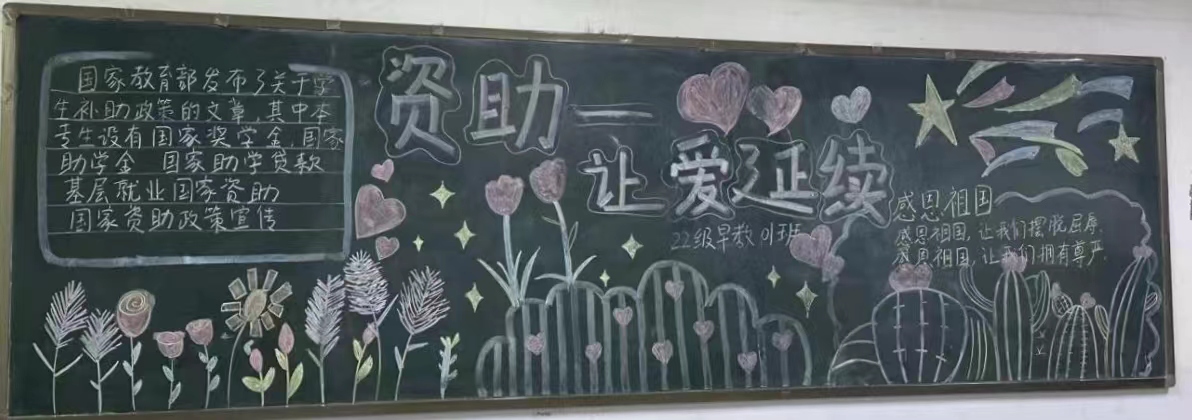 国家教育部发布了关于学
生补助政策的文章，其中本
专生设有国家奖学金，国家
助学金 国家助学贷款
基层就业国家资助
国家资助政策宣传
资助——
让爱延续
22级早教01班
感恩祖国
感恩祖国，让我们摆脱屈辱，
感恩祖国，让我们拥有尊严。